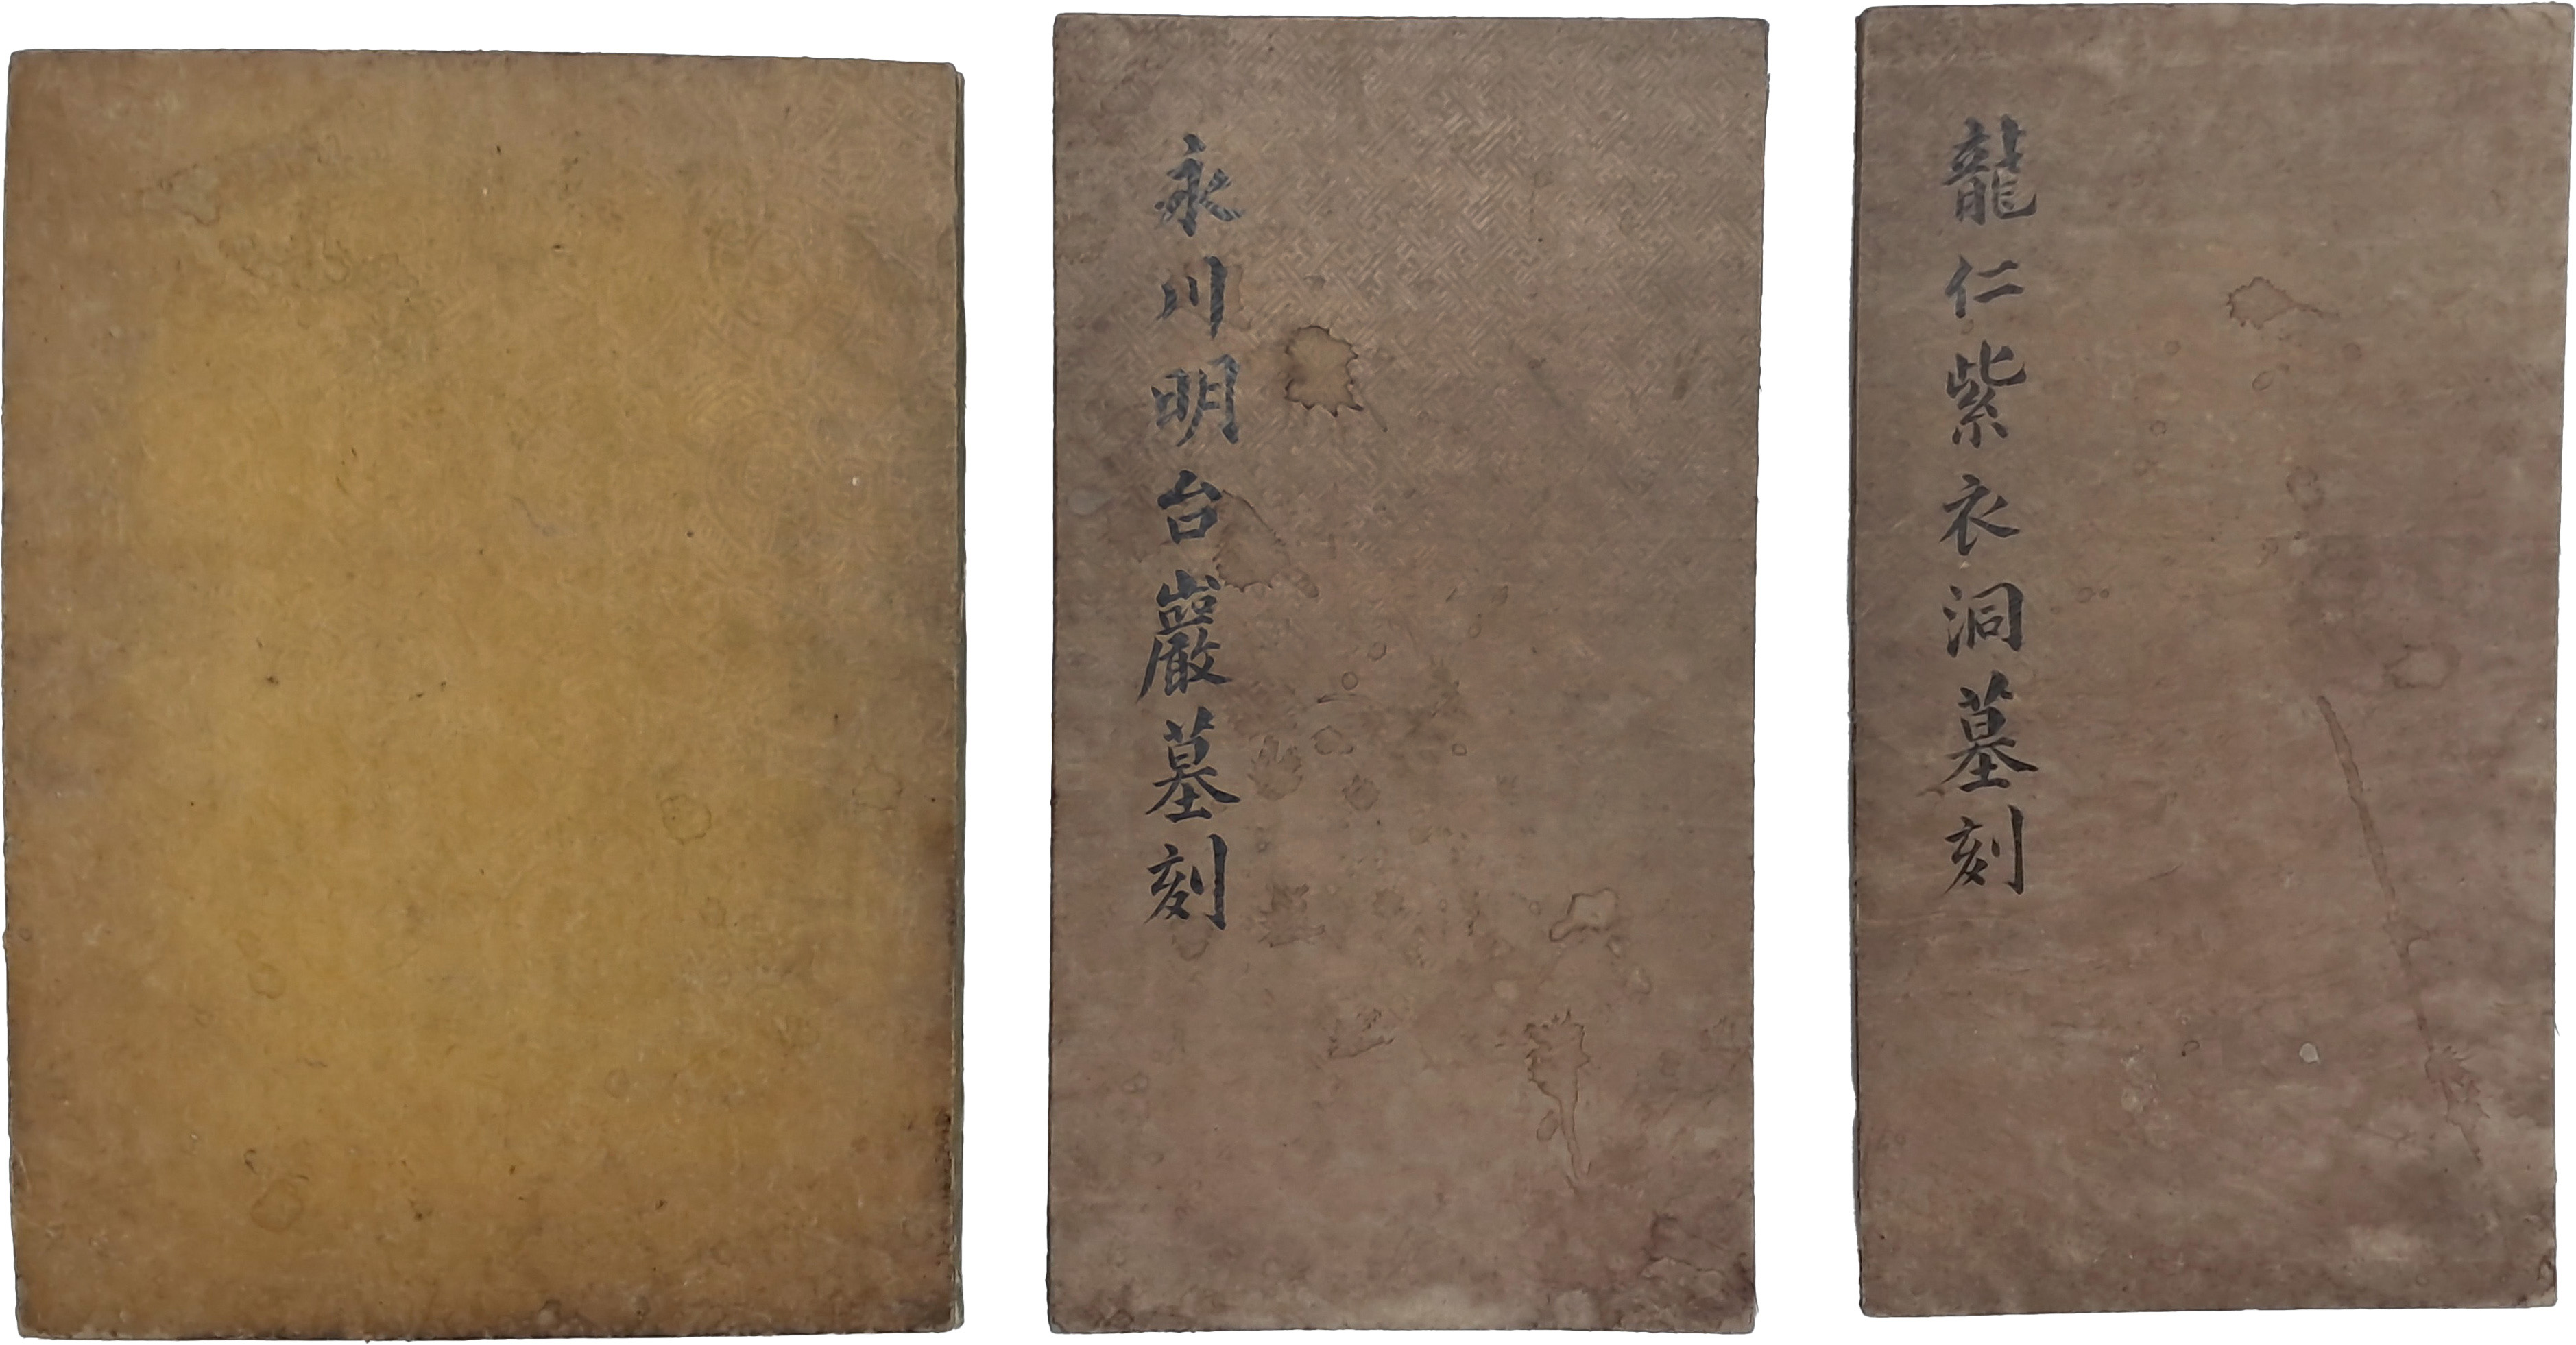 永川明台巖墓刻
龍仁紫衣洞墓刻